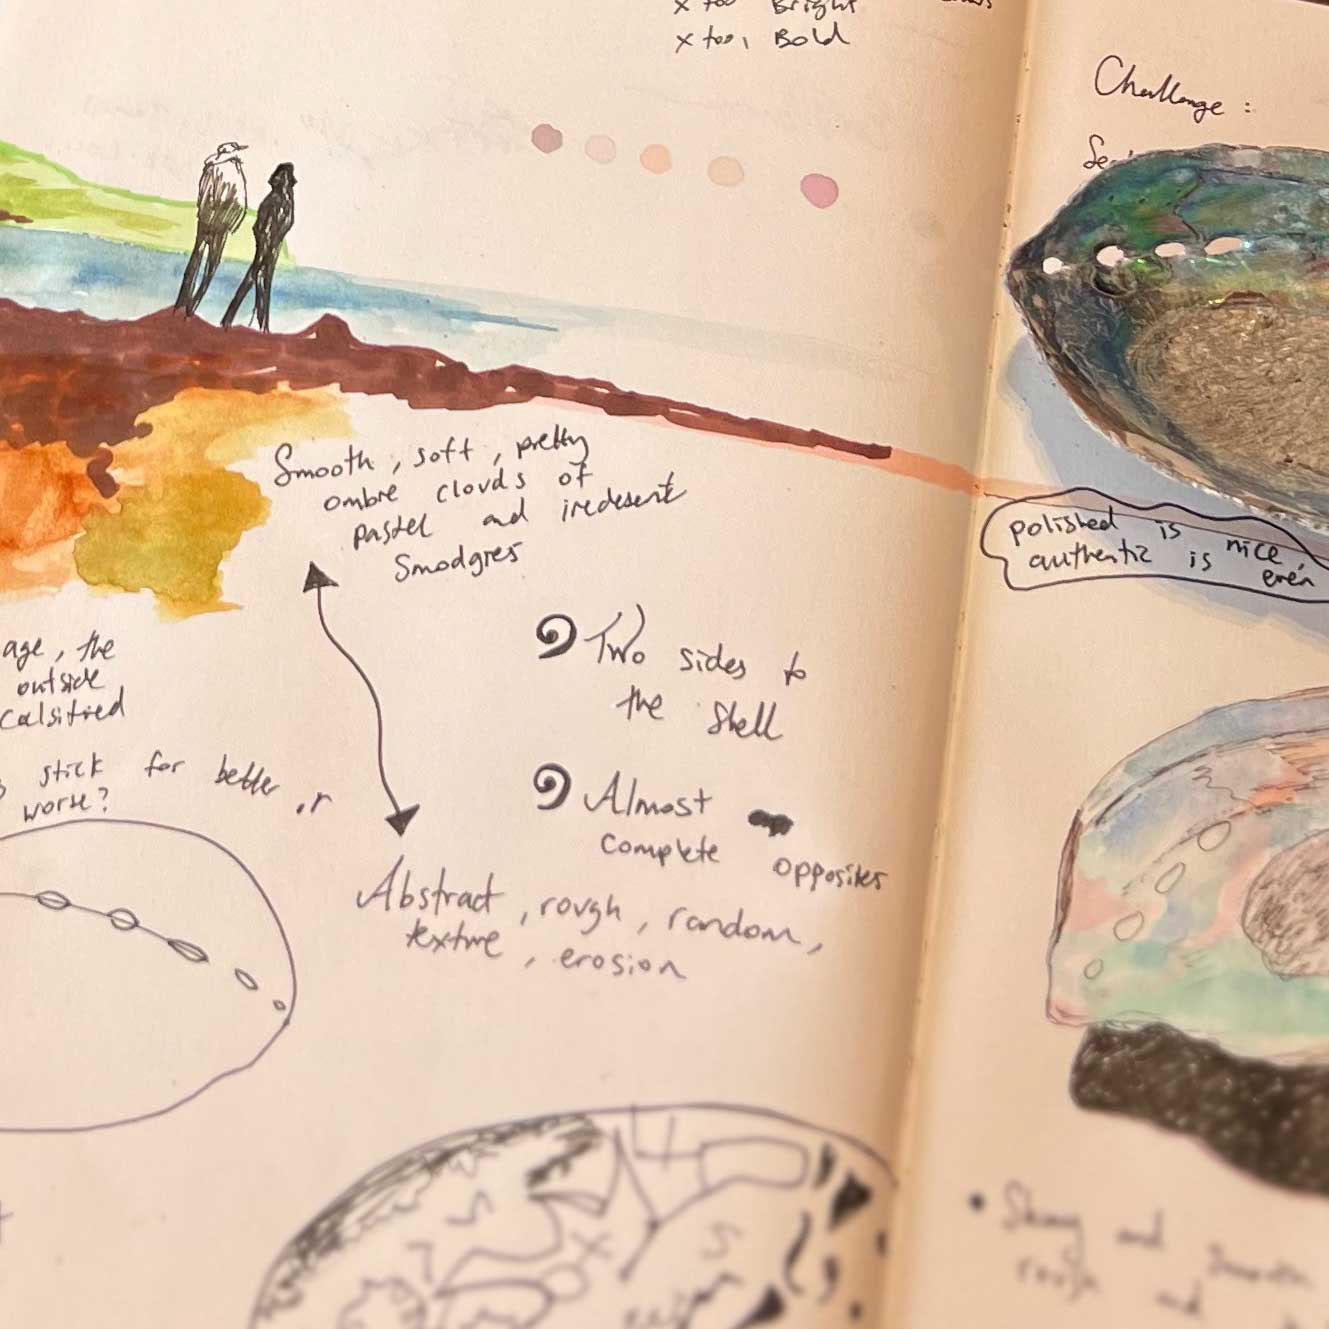 x too Bright
x too, Bold
Smooth, soft, pretty
ombre clouds of
pastel and iredesent
Smodgres
age, the
outside
calsified
stick for better or
worse?
Two sides to
the Shell
Almost
complete opposites
Abstract, rough, random,
texture, erosion
Challenge:
polished is nice,
authentic is even
Shiny and smooth
rough and